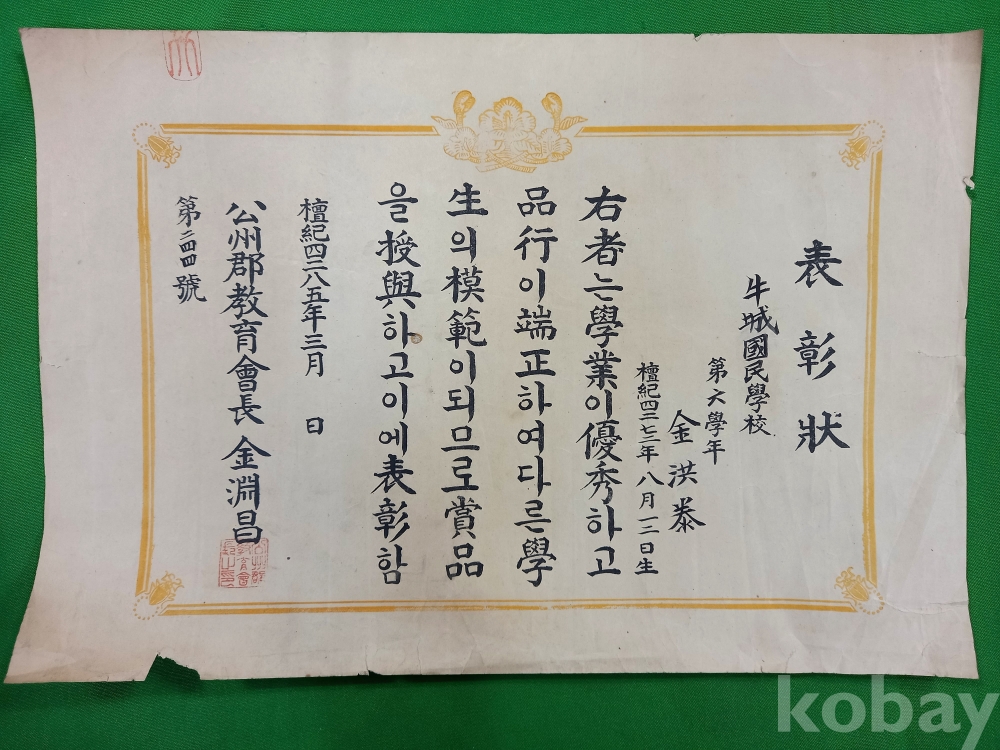 表彰狀
牛城國民學校
第六學年
金洪泰
檀紀四二七三年八月一二日生
右者는學業이優秀하고
品行이端正하여다른學
生의模範이되므로賞品
을授與하고이에表彰함
檀紀四二八五年三月 日
公州郡教育會長 金淵昌
第二四四號
kobay